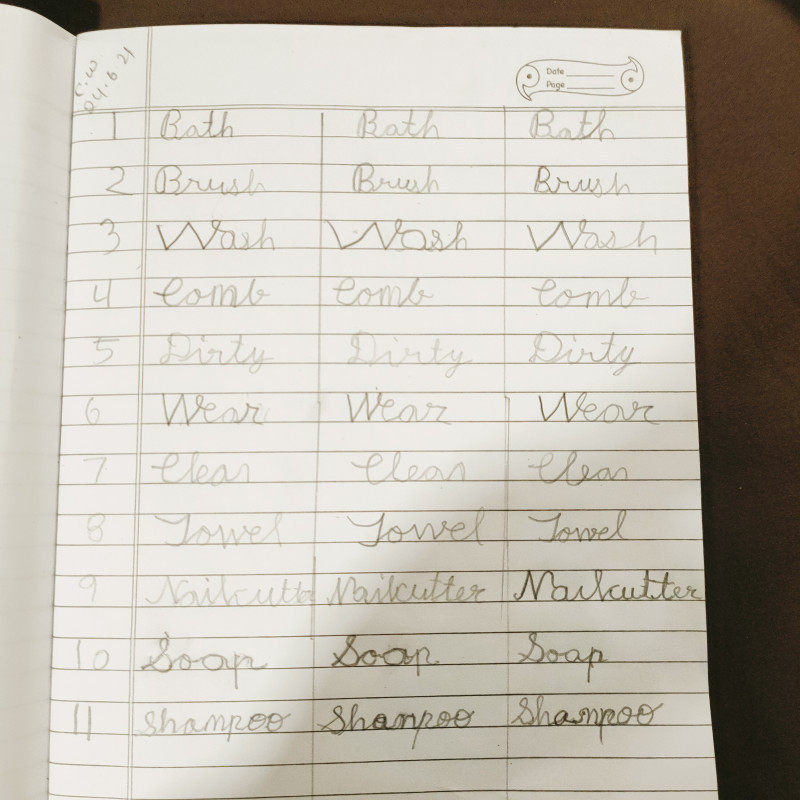 C.W
04.6.21
Date
Page
1 Bath Bath Bath
2 Brush Brush Brush
3 Wash Wash Wash
4 Comb Comb Comb
5 Dirty Dirty Dirty
6 Wear Wear Wear
7 Clean Clean Clean
8 Towel Towel Towel
9 Nailcutte Nailcutter Nailcutter
10 Soap Soap Soap
11 Shampoo Shampoo Shampoo